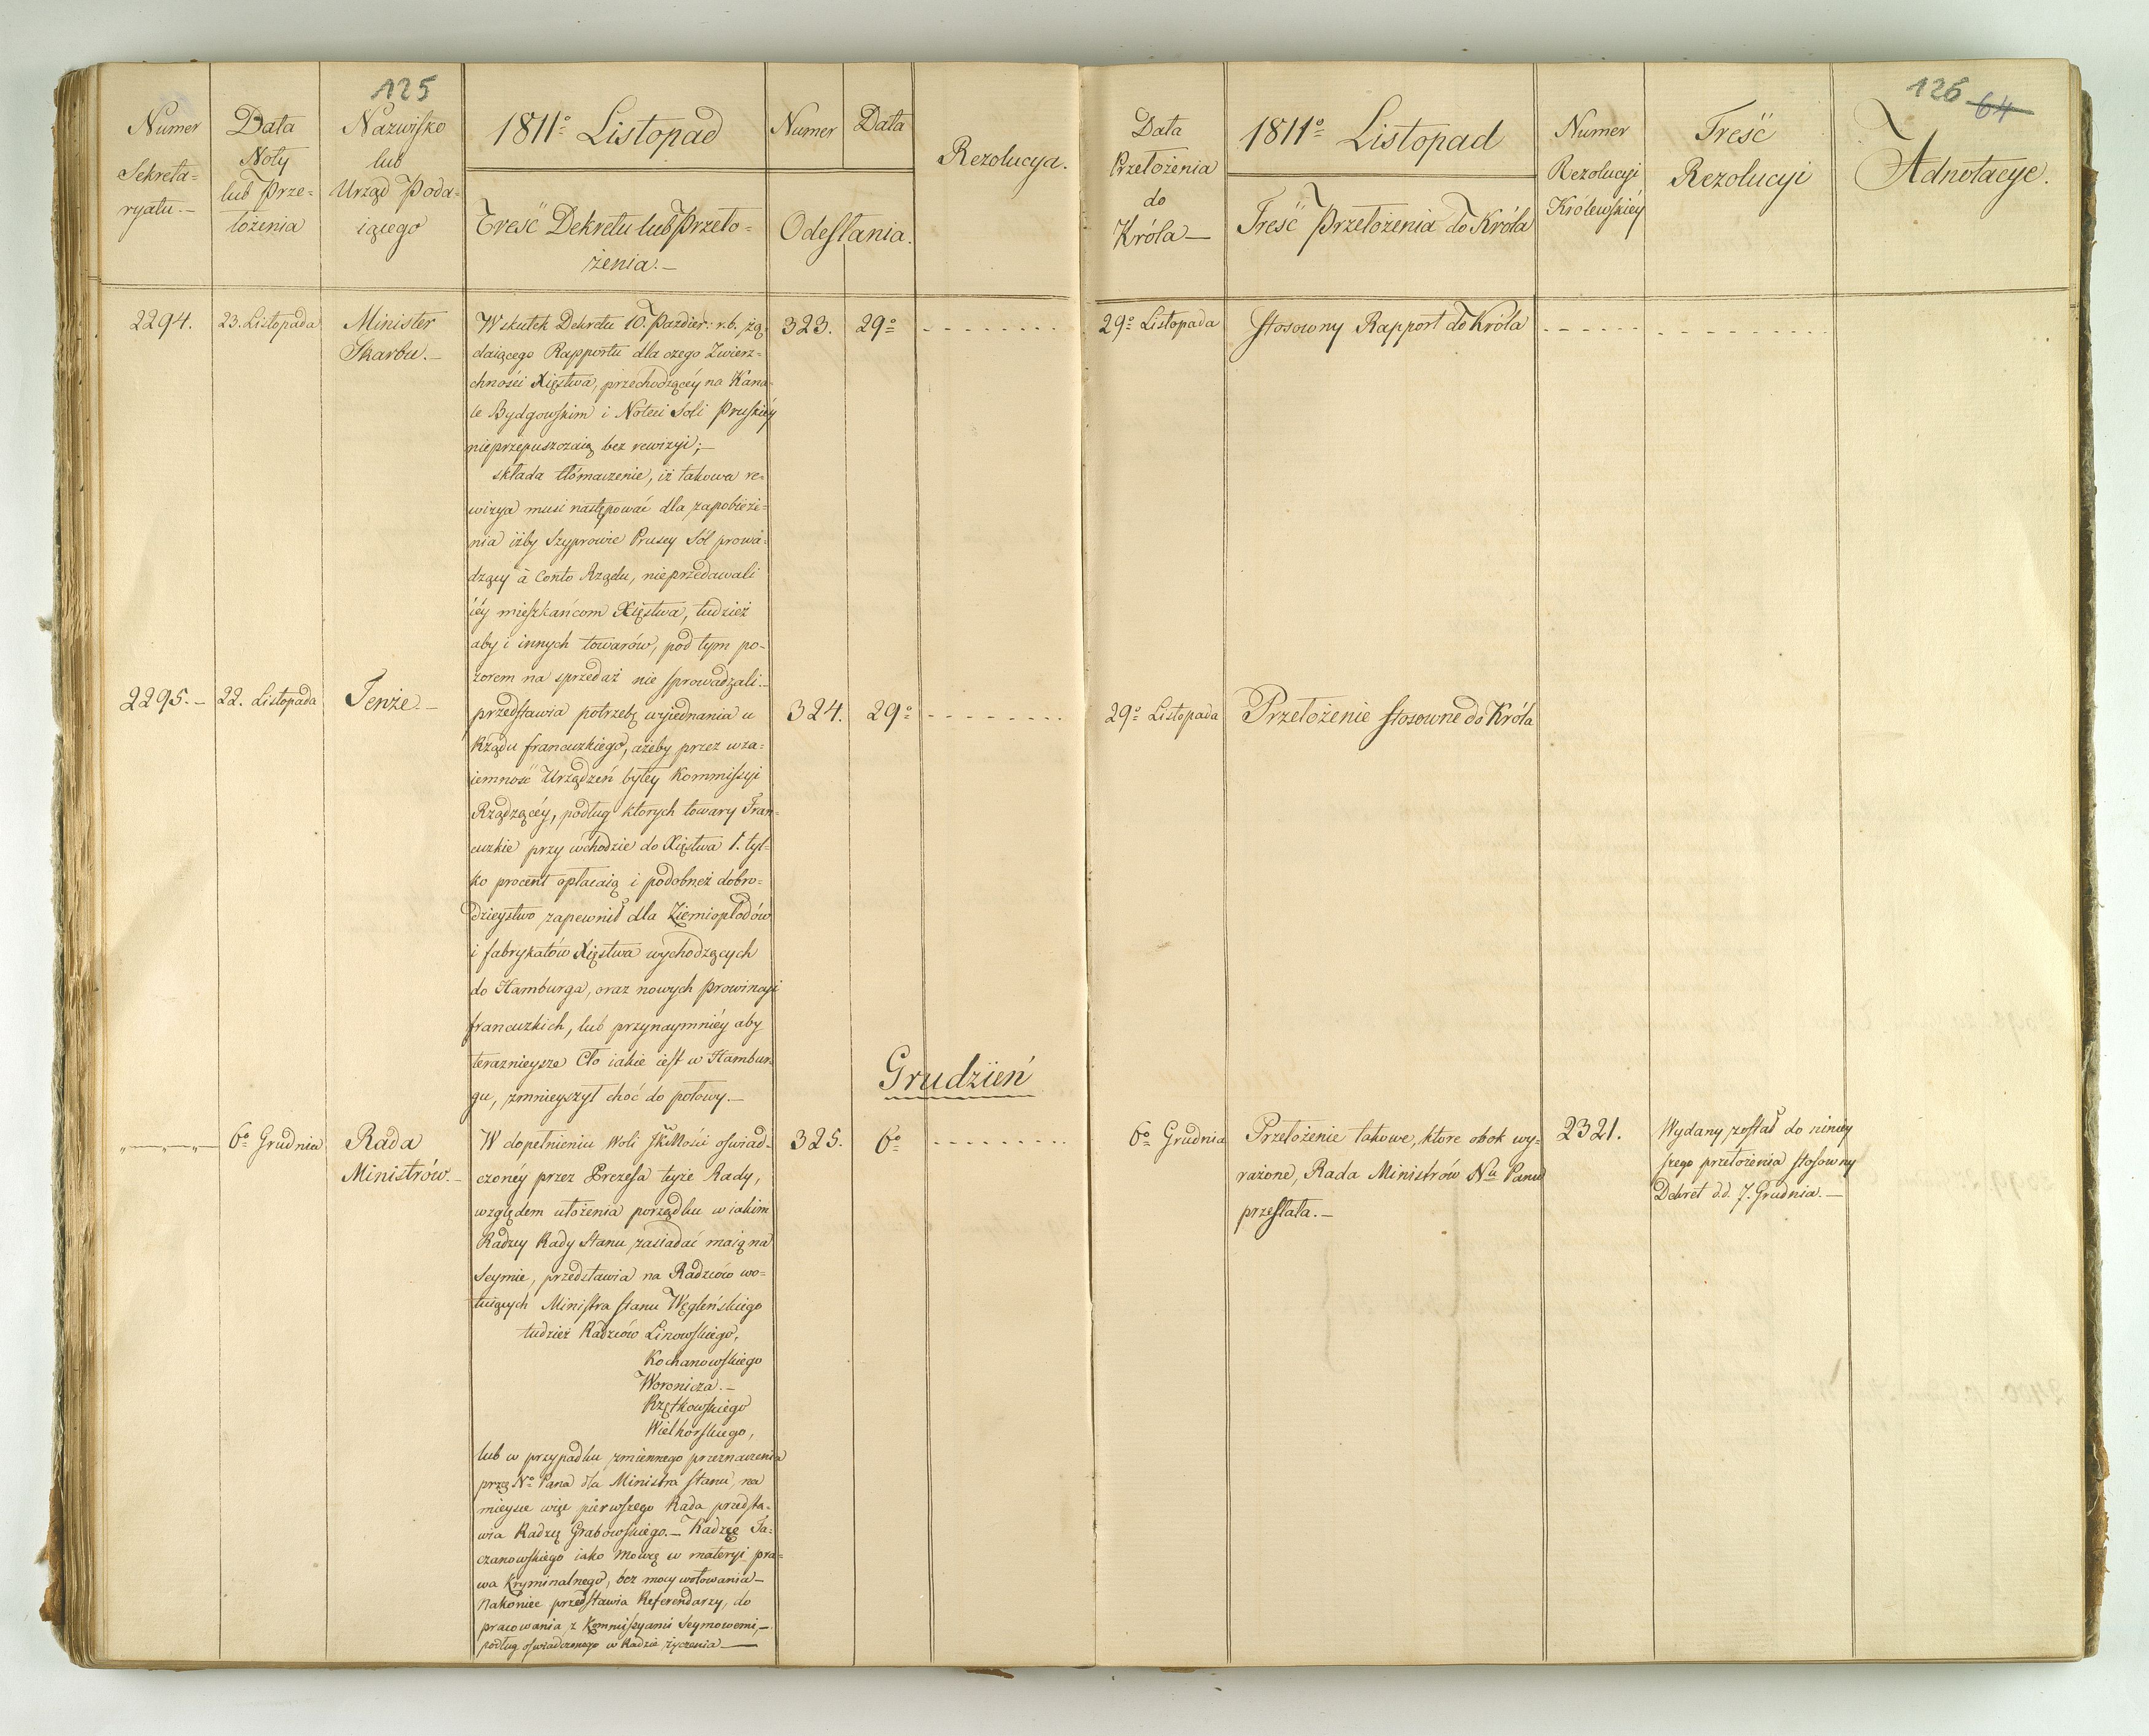 125
Numer
Sekreta=
ryatu.—
Data
Noty
lub Prze=
łożenia
Nazwisko
lub
Urząd Poda=
iącego
1811o Listopad
Treść Dekretu lub Przeło=
żenia.—
Numer
Data
Odesłania.
Rezolucya.
2294.
23. Listopada
Minister
Skarbu.—
W skutek Dekretu 10. Paździer: r.b. żą=
daiącego Rapportu dla czego Zwierz=
chności Xięstwa, przechodzącéy na Kana=
le Bydgowskim i Noteci Soli Pruskiéy
nieprzepuszczaią bez rewizyi;—
składa tłómaczenie, iż takowa re=
wizya musi następować dla zapobieże=
nia iżby Szyprowie Pruscy Sól prowa=
dzący à Conto Rządu, nieprzedawali
iéy mieszkańcom Xięstwa, tudzież
aby i innych towarów, pod tym po=
zorem na sprzedaż nie sprowadzali.—
323.
29o
2295.—
22. Listopada
Tenże.—
przedstawia potrzebę wyiednania u
Rządu francuzkiego, ażeby przez wza=
iemność Urządzeń byłey Kommissyi
Rządzącéy, podług ktorych towary Fran=
cuzkie przy wchodzie do Xięstwa 1. tyl=
ko procent opłacaią i podobneż dobro=
dzieystwo zapewnił dla Ziemiopłodów
i fabrykatów Xięstwa wychodzących
do Hamburga, oraz nowych prowincyi
francuzkich, lub przynaymniéy aby
teraznieysze Cło iakie iest w Hambur=
gu, zmnieyszył choć do połowy.—
324.
29o
Grudzień
„—„—„—
6o Grudnia
Rada
Ministrów.—
W dopełnieniu Woli JKMości oświad=
czonéy przez Prezesa teyże Rady,
względem ułożenia porządku w iakim
Radzcy Rady Stanu zasiadać maią na
Seymie, przedstawia na Radzców wo=
tuiących Ministra Stanu Węgleńskiego
tudzież Radzców Linowskiego,
Kochanowskiego
Woronicza.—
Rzętkowskiego
Wielhorskiego,
lub w przypadku zmiennego przeznaczenia
przez No Pana dla Ministra Stanu, na
mieysce więc pierwszego Rada przedsta=
wia Radzcę Grabowskiego.— Radzcę Ta=
czanowskiego iako Mowcę w materyi pra=
wa Kryminalnego, bez mocy wotowania—
Nakoniec przedstawia Referendarzy, do
pracowania z Kommissyami Seymowemi,—
podług oświadczonego w Radzie życzenia—
325.
6o
126
64
Data
Przełożenia
do
Króla—
1811o Listopad
Treść Przełożenia do Króla
Numer
Rezolucyi
Królewskiéy
Treść
Rezolucyi
Adnotacye.
29o Listopada
Stosowny Rapport do Króla
29o Listopada
Przełożenie stosowne do Króla
6o Grudnia
Przełożenie takowe, ktore obok wy=
rażone, Rada Ministrów Nu Panu
przesłała.—
2321.
Wydany został do niniey
szego przełożenia stosowny
Dekret d.d. 7. Grudnia.—